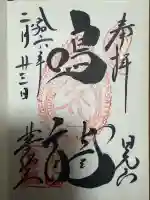 奉拝
日光山
鳴龍
六年
二月廿三日
薬師堂